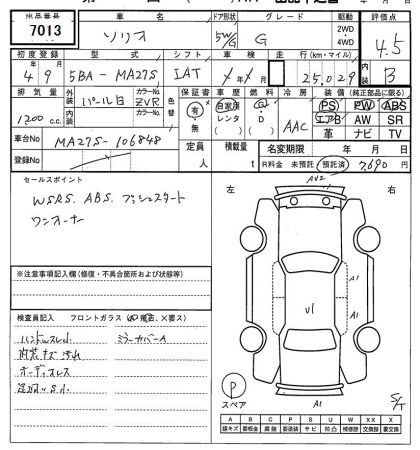 出品番号 車名 ドア形状 グレード 駆動 評価点
7013 ソリオ 5W/G G 2WD 4WD 4.5
初度登録 型式 シフト 車検 走行(km・マイル) 内装
4年9月 5BA-MA27S IAT 年 月 25,029 B
排気量 外装 カラーNo. 色替 保証書 車歴 燃料 冷房 装備(純正部品に限る)
1200 c.c. パール白 ZVR 有 無 自家用 レンタ ( ) G D ( ) AAC PS PW ABS
エアB AW SR
革 ナビ TV
車台No MA27S-106848 定員 人 積載量 t 名変期限 年 月 日
登録No R料金 未預託 預託済 7,690 円
セールスポイント
WSRS. ABS. プッシュスタート
ワンオーナー
左 右
AU2
A1
A1
U1
A1
S/T
※注意事項記入欄(修復・不具合箇所および状態等)
検査員記入 フロントガラス
ハンドルスレ小 ミラーカバーA
内装キズ汚れ
オーディオレス
P
スペア
A B C P S U W X XX
線キズ 鈑金跡 腐蝕 要塗装 サビ 凹凸 補修跡 交換跡 要交換